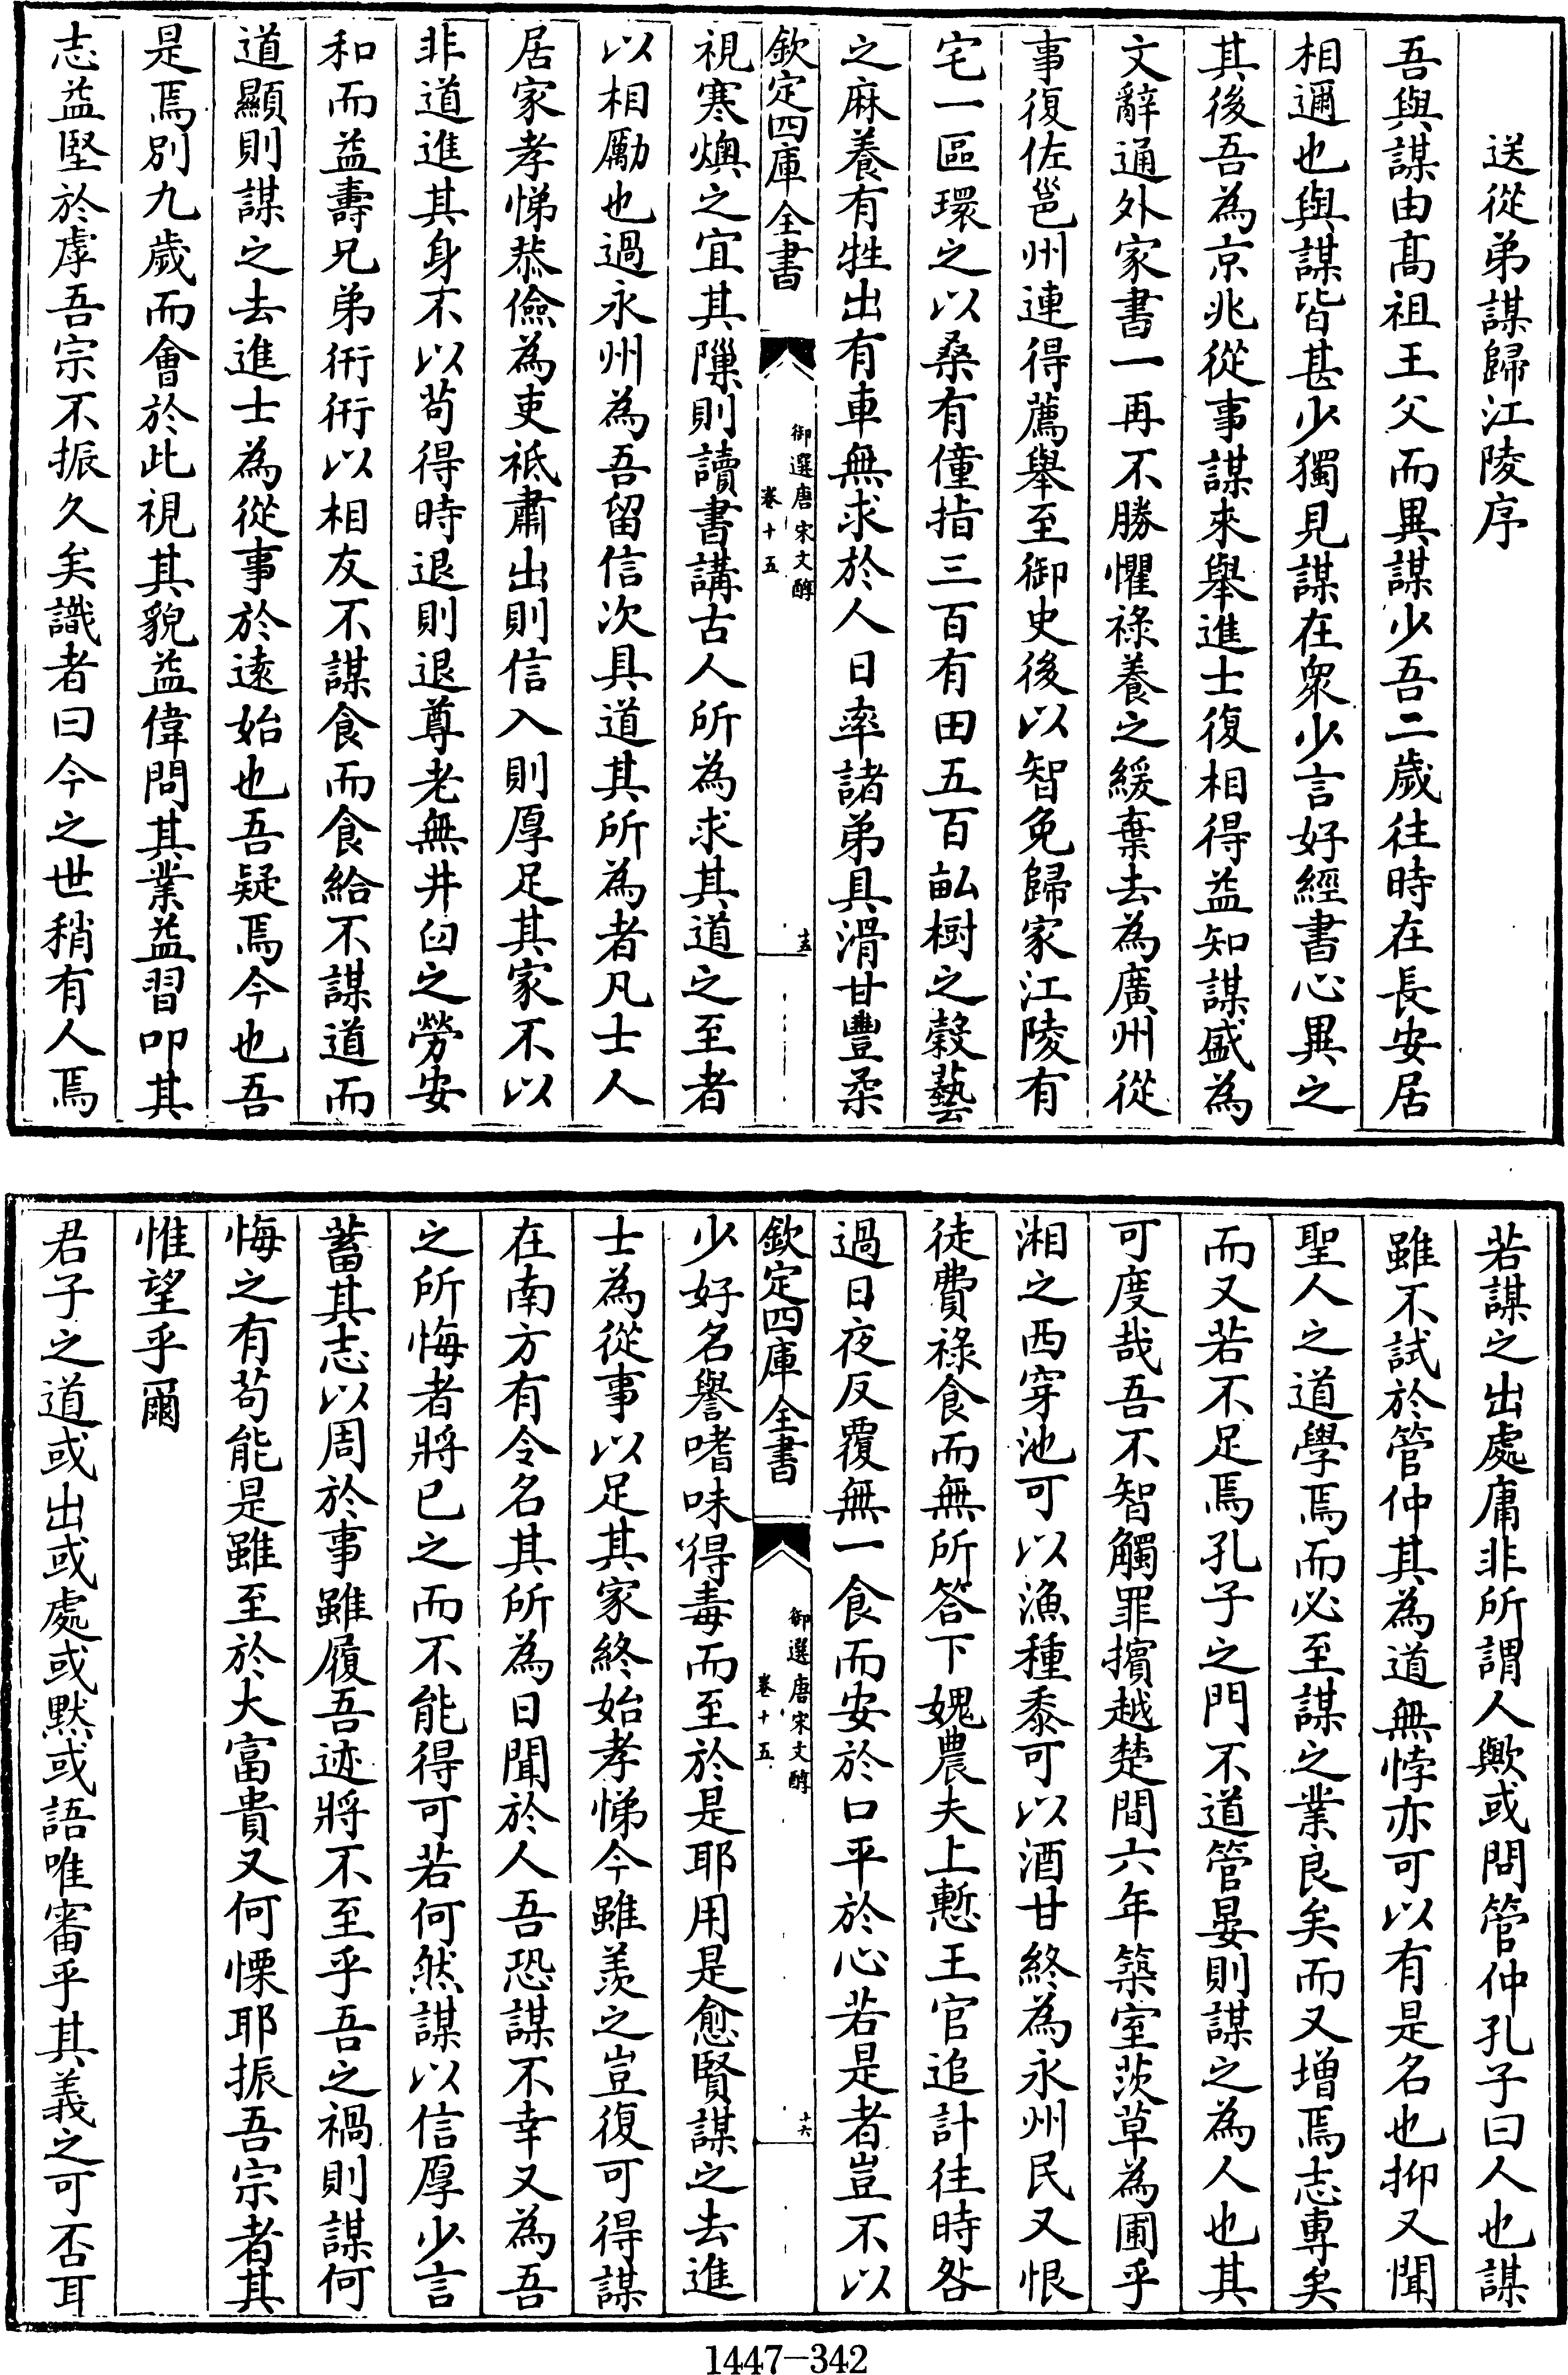 送從弟謀歸江陵序
吾與謀由髙祖王父而異謀少吾二歲往時在長安居
相邇也與謀皆甚少獨見謀在衆少言好經書心異之
其後吾為京兆從事謀來舉進士復相得益知謀盛為
文辭通外家書一再不勝懼祿養之緩棄去為廣州從
事復佐邕州連得薦舉至御史後以智免歸家江陵有
宅一區環之以桑有僮指三百有田五百畝樹之榖藝
之麻養有牲出有車無求於人日率諸弟具滑甘豐柔
欽定四庫全書
御選唐宋文醇
卷十五
十五
視寒燠之宜其隟則讀書講古人所為求其道之至者
以相勵也過永州為吾留信次具道其所為者凡士人
居家孝悌恭儉為吏祗肅出則信入則厚足其家不以
非道進其身不以茍得時退則退尊老無井臼之勞安
和而益壽兄弟衎衎以相友不謀食而食給不謀道而
道顯則謀之去進士為從事於逺始也吾疑焉今也吾
是焉別九歲而會於此視其貌益偉問其業益習叩其
志益堅於虖吾宗不振久矣識者曰今之世稍有人焉
若謀之出處庸非所謂人歟或問管仲孔子曰人也謀
雖不試於管仲其為道無悖亦可以有是名也抑又聞
聖人之道學焉而必至謀之業良矣而又增焉志專矣
而又若不足焉孔子之門不道管晏則謀之為人也其
可度哉吾不智觸罪擯越楚間六年築室茨草為圃乎
湘之西穿池可以漁種黍可以酒甘終為永州民又恨
徒費祿食而無所答下媿農夫上慙王官追計往時咎
過日夜反覆無一食而安於口平於心若是者豈不以
欽定四庫全書
御選唐宋文醇
卷十五
十六
少好名譽嗜味得毒而至於是耶用是愈賢謀之去進
士為從事以足其家終始孝悌今雖羨之豈復可得謀
在南方有令名其所為日聞於人吾恐謀不幸又為吾
之所悔者將已之而不能得可若何然謀以信厚少言
蓄其志以周於事雖履吾迹將不至乎吾之禍則謀何
悔之有苟能是雖至於大富貴又何慄耶振吾宗者其
惟望乎爾
君子之道或出或處或默或語唯審乎其義之可否耳
1447-342